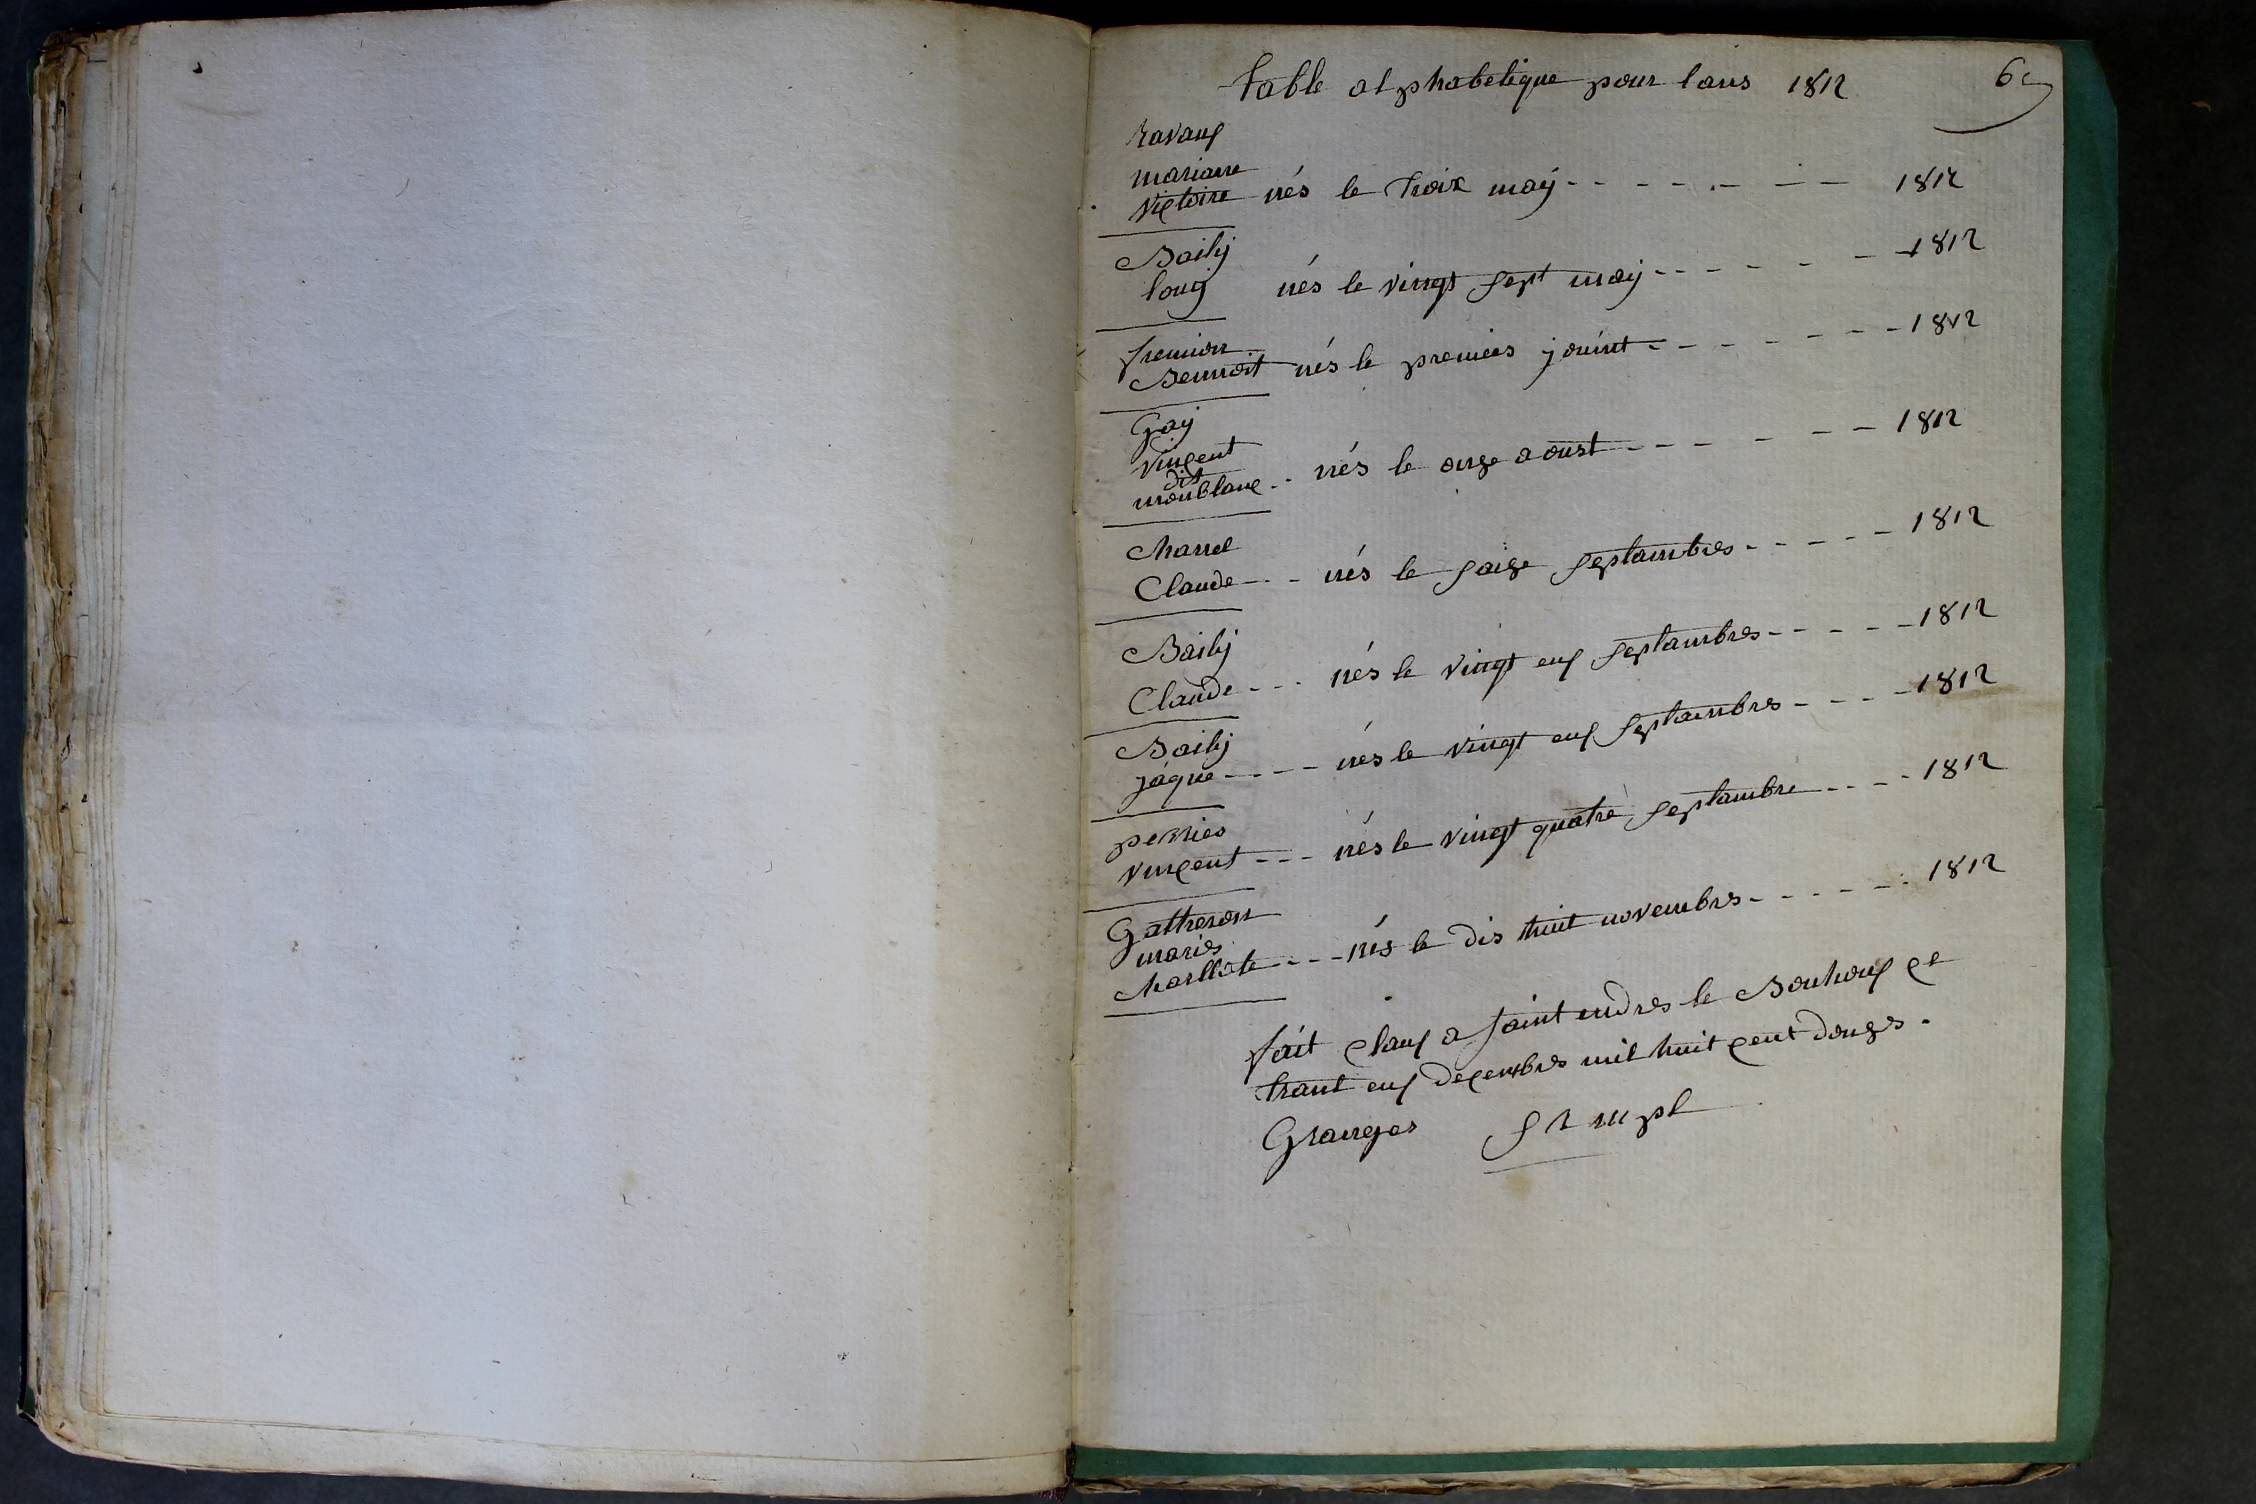 table alphabetique pour lans 1812
6
Ravaux
marianne
victoire nés le troix may - - - - - - - 1812
Baily
louis nés le vingt sept may - - - - - - 1812
fremion
Bennoit nés le premiers jouint - - - - - - 1812
Gay
vincent
dit
monblanc - - nés le onze aoust - - - - - - 1812
Charrel
Claude - - nés le saize septambres - - - - - 1812
Baily
Claude - - - nés le vingt eux septambres - - - - - 1812
Baily
jaque - - - - nés le vingt eux septambres - - - - 1812
perries
vincent - - - nés le vingt quatre septambre - - - - 1812
Gattheron
maries
charllote - - - - nés le dis huit novembres - - - - - - 1812
fait claux a saint endres le Bouhoux ce
trant eux decembres mil huit cent douzes.
Granges